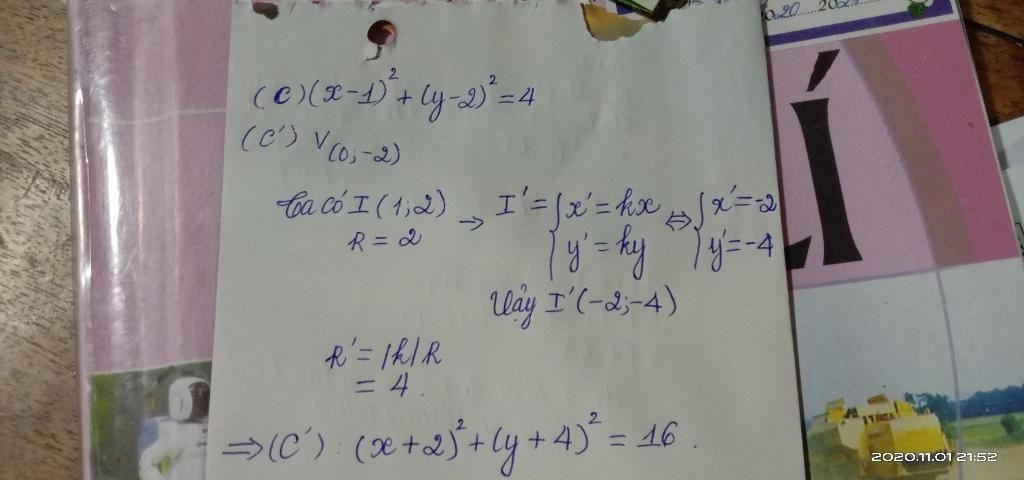 (C) (x-1)² + (y-2)² = 4
(C') V(0;-2)
Ta có I(1;2) → I' = { x' = kx ⇔ { x' = -2
R = 2 { y' = ky { y' = -4
Vậy I'(-2;-4)
R' = |k|R
= 4.
⇒ (C'): (x+2)² + (y+4)² = 16.
LÍ
2020.11.01 21:52